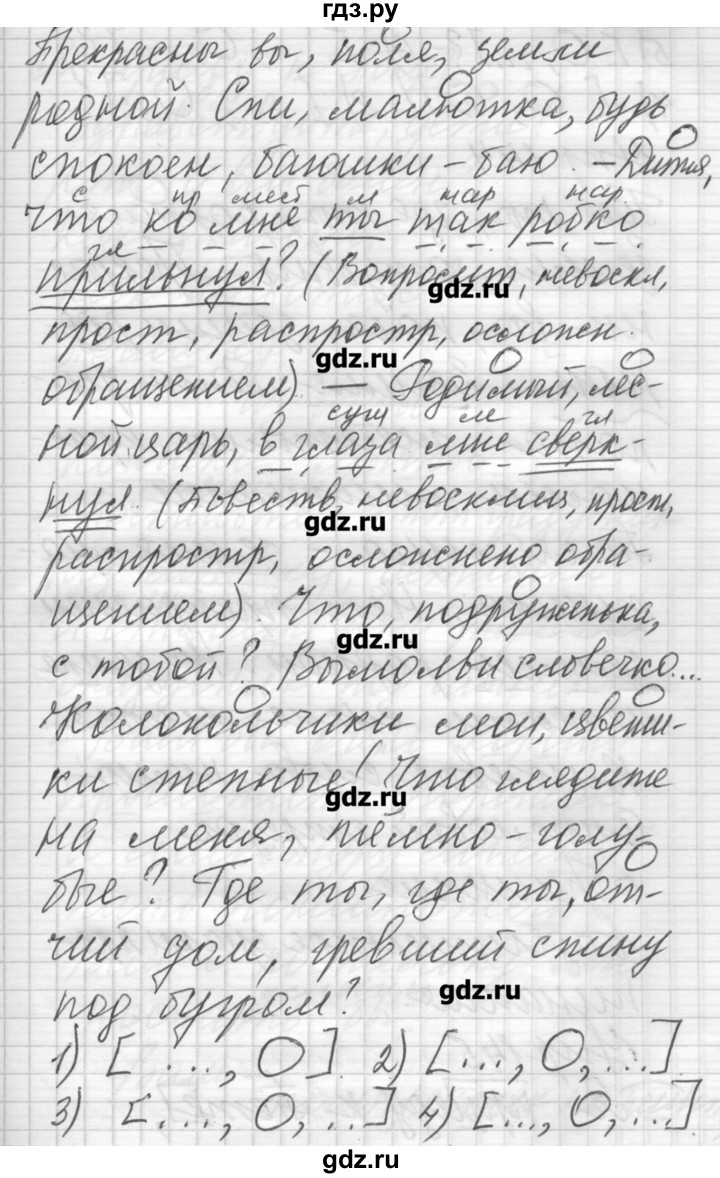 гдз.ру
Прекрасны вы, поля, земли
родной. Спи, малютка, будь
спокоен, баюшки-баю. - Дитя,
с пр мест м нар нар.
что ко мне ты так робко
гл
прильнул? (Вопросит, невоскл,
gdz.ru
прост, распростр, осложн.
gdz.ru
обращением). — Родимый, лес-
сущ м гл
ной царь, в глаза мне сверк-
нул. (Повеств, невосклиц, прост,
gdz.ru
распростр, осложнено обра-
щением). Что, подруженька,
gdz.ru
с тобой? Вымолви словечко...
Колокольчики мои, цвети-
ки степные! Что глядите
gdz.ru
на меня, тёмно-голу-
бые? Где ты, где ты, от-
чий дом, гревший спину
под бугром?
gdz.ru
1) [ ..., О ]. 2) [..., О, ...].
3) [..., О, ...] 4) [..., О, ...]
gdz.ru